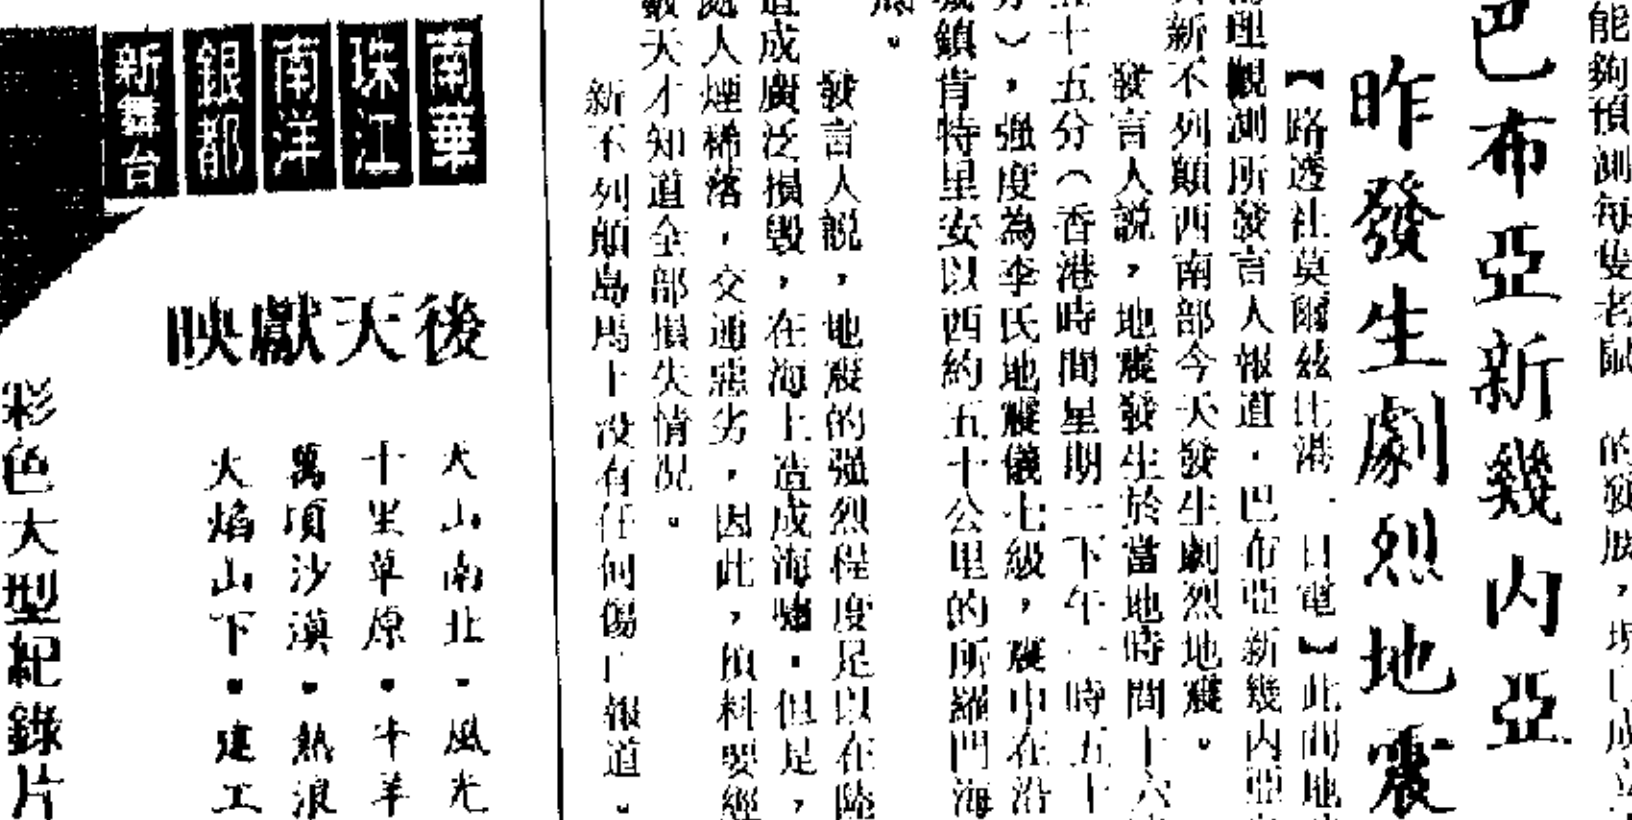 能夠預測每隻老鼠 的發展，現已成立
巴布亞新幾內亞
昨發生劇烈地震
【路透社莫爾茲比港一日電】此間地
理觀測所發言人報道，巴布亞新幾內亞
新不列顛西南部今天發生劇烈地震。
發言人說，地震發生於當地時間十六
十五分（香港時間星期一下午一時五十
，强度為李氏地震儀七級，震中在沿
城鎮肯特里安以西約五十公里的所羅門海
底。
發言人說，地震的强烈程度足以在陸
造成廣泛損毀，在海上造成海嘯。但是，
處人煙稀落，交通惡劣，因此，預料要經
數天才知道全部損失情況。
新不列顛島馬上没有任何傷亡報道。
南華
珠江
南洋
銀都
新舞台
後天獻映
火山南北・風光
十里草原・牛羊
萬頃沙漠・熱浪
火焰山下・建工
彩色大型紀錄片